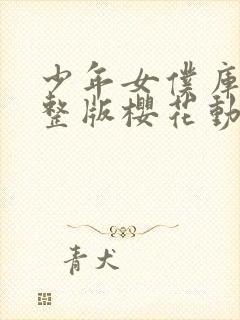 少年女僕庫
整版櫻花動
青犬